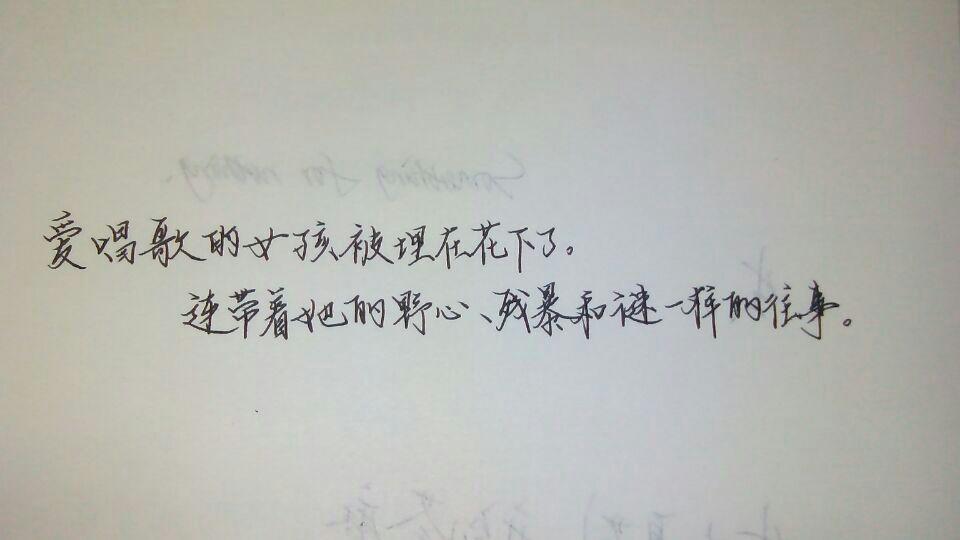 Something for nothing.
爱唱歌的女孩被埋在花下了。
连带着她的野心、残暴和谜一样的往事。